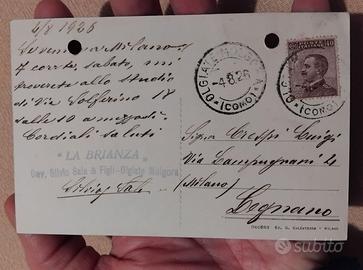 4/8 1926
Milano
7 corr. sabato, mi
allo studio
di Via Solferino 18
dalle 10 a mezzodì.
Cordiali saluti
"LA BRIANZA"
Cav. Silvio Sala & Figli - Olgiate Molgora
Silvio Sala
OLGIATE MOLGORA
-4.8.26
(COMO)
(COMO)
POSTE ITALIANE
40
Sigr Crespi Luigi
Via Lampugnani 4
(Milano)
Legnano
subito